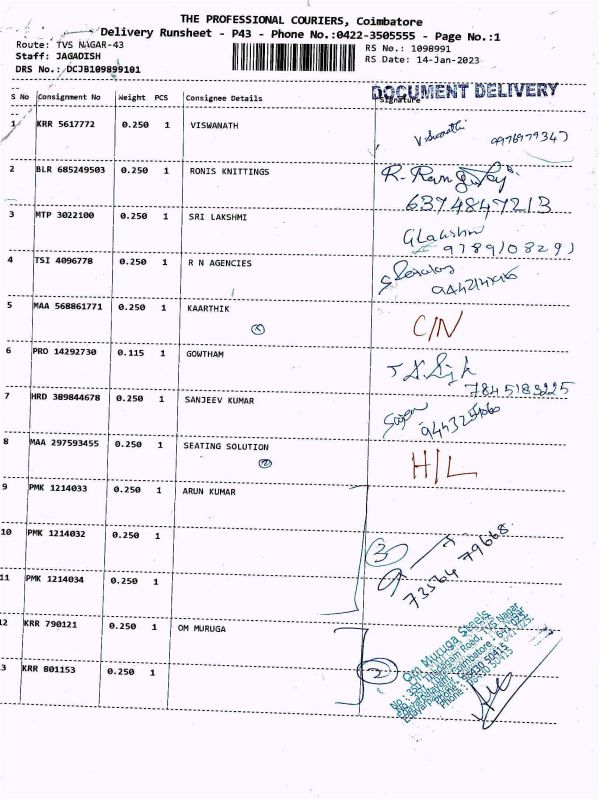 THE PROFESSIONAL COURIERS, Coimbatore
Delivery Runsheet - P43 - Phone No.:0422-3505555 - Page No.:1
Route: TVS NAGAR-43 RS No.: 1098991
Staff: JAGADISH RS Date: 14-Jan-2023
DRS No.: DCJB109899101
DOCUMENT DELIVERY
S No Consignment No Weight PCS Consignee Details Signature
1 KRR 5617772 0.250 1 VISWANATH Viswanath
2 BLR 685249503 0.250 1 RONIS KNITTINGS
6374847213
3 MTP 3022100 0.250 1 SRI LAKSHMI
9789108291
4 TSI 4096778 0.250 1 R N AGENCIES
5 MAA 568861771 0.250 1 KAARTHIK C/N
6 PRO 14292730 0.115 1 GOWTHAM
7845183225
7 HRD 389844678 0.250 1 SANJEEV KUMAR
8 MAA 297593455 0.250 1 SEATING SOLUTION H/L
9 PMK 1214033 0.250 1 ARUN KUMAR
10 PMK 1214032 0.250 1 3
73564 79668
11 PMK 1214034 0.250 1
12 KRR 790121 0.250 1 OM MURUGA
Om Muruga Steels
13 KRR 801153 0.250 1 2